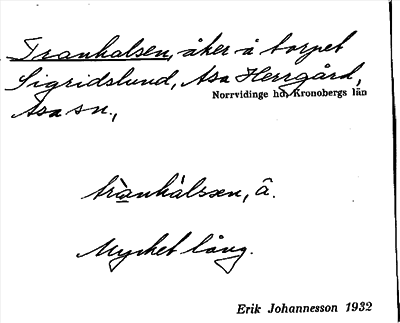 Tranhalsen, åker å torpet
Sigridslund, Asa Herrgård,
Norrvidinge hd, Kronobergs län
Asa sn.,
trànhálsen, â.
Mycket lång.
Erik Johannesson 1932